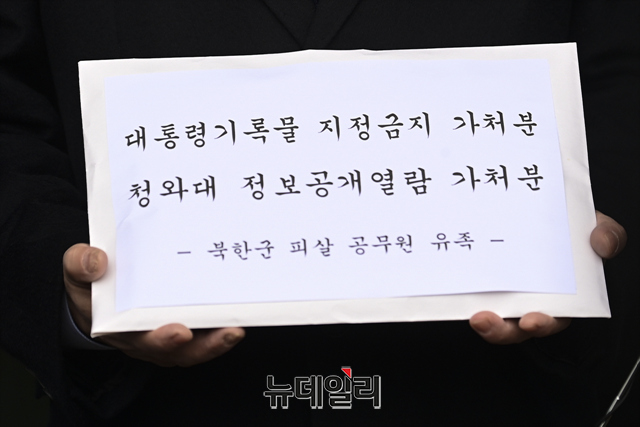 대통령기록물 지정금지 가처분
청와대 정보공개열람 가처분
- 북한군 피살 공무원 유족 -
뉴데일리